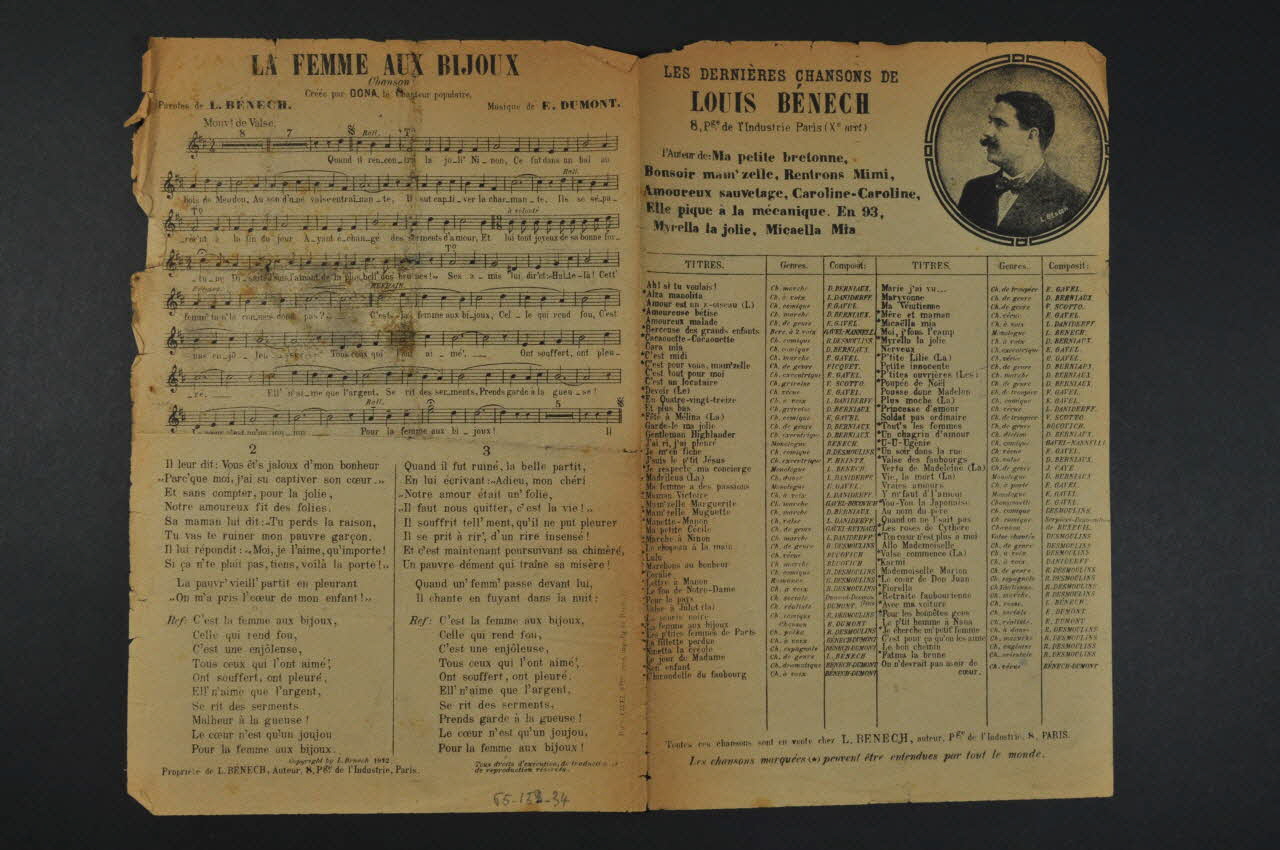 LA FEMME AUX BIJOUX
Chanson
Créée par DONA, le Chanteur populaire.
Paroles de L. BÉNECH.
Musique de E. DUMONT.
Mouvt de Valse.
Quand il ren_con_tra la joli' Ni_non, Ce fut dans un bal au
bois de Meudon, Au son d'une valse entraî_nan_te, Il sut cap_ti_ver la charman_te. Ils se sépa_
_rèr'nt à la fin du jour Ayant échan_gé des serments d'amour, Et lui tout joyeux de sa bonne for_
REFRAIN.
femm' tu n'la connais donc pas? C'est la femme aux bijoux, Cel_le qui rend fou, C'est
Tous ceux qui l'ont ai_mé', Ont souffert, ont pleu_
_ré, Ell' n'aime que l'argent, Se rit des serments, Prends garde à la gueu_se!
Pour la femme aux bi_joux! Il
2
Il leur dit: Vous êt's jaloux d'mon bonheur
„Parc'que moi, j'ai su captiver son cœur.„
Et sans compter, pour la jolie,
Notre amoureux fit des folies.
Sa maman lui dit: „Tu perds la raison,
Tu vas te ruiner mon pauvre garçon.
Il lui répondit: „Moi, je l'aime, qu'importe!
Si ça n'te plait pas, tiens, voilà la porte!„
La pauvr' vieill' partit en pleurant
„On m'a pris l'cœur de mon enfant!„
Ref: C'est la femme aux bijoux,
Celle qui rend fou,
C'est une enjôleuse,
Tous ceux qui l'ont aimé',
Ont souffert, ont pleuré.
Ell' n'aime que l'argent,
Se rit des serments
Malheur à la gueuse!
Le cœur n'est qu'un joujou
Pour la femme aux bijoux.
3
Quand il fut ruiné, la belle partit,
En lui écrivant: „Adieu, mon chéri
„Notre amour était un' folie,
„Il faut nous quitter, c'est la vie!„
Il souffrit tell'ment, qu'il ne put pleurer
Il se prit à rir', d'un rire insensé!
Et c'est maintenant poursuivant sa chimèr',
Un pauvre dément qui traîne sa misère!
Quand un' femm' passe devant lui,
Il chante en fuyant dans la nuit:
Ref: C'est la femme aux bijoux,
Celle qui rend fou,
C'est une enjôleuse,
Tous ceux qui l'ont aimé',
Ont souffert, ont pleuré.
Ell' n'aime que l'argent,
Se rit des serments,
Prends garde à la gueuse!
Le cœur n'est qu'un joujou
Pour la femme aux bijoux!
Copyright by L. Benech 1912
Propriété de L. BÉNECH, Auteur, 8, Pge de l'Industrie, Paris.
Tous droits d'exécution, de traduction et
de reproduction réservés.
65-152-34
LES DERNIÈRES CHANSONS DE
LOUIS BÉNECH
8, Pge de l'Industrie Paris (Xe arrt)
l'Auteur de: Ma petite bretonne,
Bonsoir mam'zelle, Rentrons Mimi,
Amoureux sauvetage, Caroline-Caroline,
Elle pique à la mécanique. En 93,
Myrella la jolie, Micaella Mia
TITRES. Genres. Composit: TITRES. Genres. Composit:
Ah! si tu voulais! Ch. marche D. BERNIAUX. Marie j'ai vu... Ch. de troupier E. GAVEL.
*Alza manolita Ch. à voix L. DANIDERFF. Maryvonne Ch. de genre D. BERNIAUX.
Amour est un x-oiseau (L) Ch. comique E. GAVEL. Ma Vénitienne Ch. de genre V. SCOTTO.
*Amoureuse bêtise Ch. marche D. BERNIAUX. *Mère et maman Ch. vécue E. GAVEL.
*Amoureux malade Ch. de genre E. GAVEL. *Micaëlla mia Ch. à voix L. DANIDERFF.
*Berceuse des grands enfants Berc. à 2 voix GAVEL-MANNELLI *Moi, j'fous l'camp Monologue L. BENECH.
*Cacaouette-Cacaouette Ch. comique R. DESMOULINS *Myrella la jolie Ch. à voix D. BERNIAUX.
Cara mia Ch. comique D. BERNIAUX. Nerveux Ch. excentrique E. GAVEL.
*C'est midi Ch. marche E. GAVEL. *P'tite Lilie (La) Ch. vécue E. GAVEL.
*C'est pour vous, mam'zelle Ch. de genre FICQUET. Petite innocente Ch. de genre D. BERNIAUX
C'est tout pour moi Ch. excentrique E. GAVEL. *P'tites ouvrières (Les) Ch. marche D. BERNIAUX
C'est un locataire Ch. grivoise V. SCOTTO. *Poupée de Noël Ch. de genre D. BERNIAUX.
*Devoir (Le) Ch. vécue E. GAVEL. Pousse donc Madelon Ch. de genre E. GAVEL.
*En Quatre-vingt-treize Ch. à voix L. DANIDERFF Plus moche (La) Ch. comique E. GAVEL.
Et plus bas Ch. grivoise D. BERNIAUX. *Princesse d'amour Ch. vécue L. DANIDERFF.
*Fête à Mélina (La) Ch. comique E. GAVEL. Soldat pas ordinaire Ch. de troupier V. SCOTTO.
Garde-le ma jolie Ch. de genre D. BERNIAUX *Tout's les femmes Ch. de genre BOCOVICH.
Gentleman Highlander Ch. excentrique D. BERNIAUX. *Un chagrin d'amour Ch. diction D. BERNIAUX.
*J'ai ri, j'ai pleuré Monologue BENECH. *U-U-Ugénie Ch. comique GAVEL-MANNELLI
*Je m'en fiche Ch. comique R. DESMOULINS *Un soir dans la rue Ch. vécue E. GAVEL.
J'suis le p'tit Jésus Ch. excentrique F. HEINTZ. *Valse des faubourgs Ch. valse D. BERNIAUX.
*Je respecte ma concierge Monologue L. BENECH. Vertu de Madeleine (La) Ch. de genre J. CAYE
*Madrilena (La) Ch. danse L. DANIDERFF. Vie, la mort (La) Monologue L. BENECH.
Ma femme a des passions Monologue E. GAVEL. Vraies amours Ch. à parlé E. GAVEL.
*Maman Victoire Ch. à voix L. DANIDERFF. Y m'faut d'l'amour Monologue E. GAVEL.
*Mam'zelle Marguerite Ch. marche *You-You la Japonaise Chansonnette E. GAVEL
*Mam'zelle Muguette Ch. marche D. BERNIAUX. Au nom du père Ch. comique DESMOULINS.
*Manette-Manon Ch. valse L. DANIDERFF. Quand on ne l'sait pas Ch. comique
*Ma petite Cécile Ch. de genre *Les roses de Cythère Chanson de BUXEUIL
*Marche à Ninon Ch. marche L. DANIDERFF. *Ton cœur n'est plus à moi Valse chantée DESMOULINS
*Le chapeau à la main Ch. de genre R. DESMOULINS Allo Mademoiselle Ch. de genre DESMOULINS.
Lulu Ch. vécue BUCOVICH *Valse commence (La) Ch. à voix DESMOULINS.
Marchons au bonheur Ch. marche BUCOVICH *Karmi Ch. à voix DANIDERFF
*Coralie Ch. comique R. DESMOULINS Mademoiselle Marion Ch. de genre R. DESMOULINS
*Lettre à Manon Romance R. DESMOULINS *Le cœur de Don Juan Ch. espagnole R. DESMOULINS
*Le fou de Notre-Dame Ch. à voix R. DESMOULINS *Fiorella R. DESMOULINS
*Pour le pays Ch. sociale *Retraite faubourienne Ch. marche R. DESMOULINS
*Valse à Julot (la) Ch. réaliste DUMONT *Avec ma voiture Ch. rosse. L. BÉNECH.
La souris noire Ch. comique R. DESMOULINS *Pour les honnêtes gens Ch. sociale E. DUMONT.
*La femme aux bijoux Chanson E. DUMONT *Le p'tit homme à Nana Ch. réaliste. E. DUMONT
*Les p'tites femmes de Paris Ch. polka R. DESMOULINS *Je cherche un' petit' femme Ch. à danse R. DESMOULINS
*La fillette perdue Ch. à voix BENECH-DUMONT *C'est pour ça qu'on les aime Ch. marche R. DESMOULINS
*Ninetta la créole Ch. espagnole BENECH-DUMONT *Le bon chemin Ch. anglaise R. DESMOULINS
Le jour de Madame Ch. de genre L. BENECH *Fatma la brune Ch. orientale R. DESMOULINS
*Son enfant Ch. dramatique BENECH-DUMONT On n'devrait pas avoir de
*L'hirondelle du faubourg Ch. à voix BENECH-DUMONT cœur. Ch. vécue BÉNECH-DUMONT
Toutes ces chansons sont en vente chez L. BENECH, auteur, Pge de l'Industrie, 8, PARIS.
Les chansons marquées (*) peuvent être entendues par tout le monde.